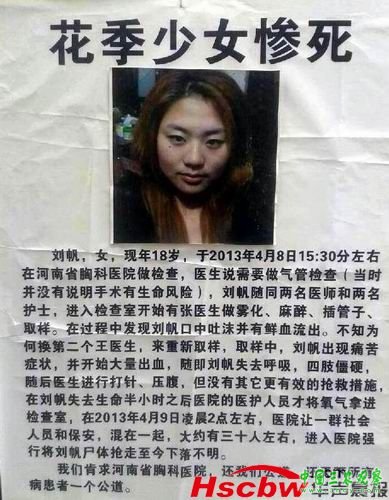 花季少女惨死
刘帆，女，现年18岁，于2013年4月8日15:30分左右
在河南省胸科医院做检查，医生说需要做气管检查（当时
并没有说明手术有生命风险），刘帆随同两名医师和两名
护士，进入检查室开始有张医生做雾化、麻醉、插管子、
取样。在过程中发现刘帆口中吐沫并有鲜血流出。不知为
何换第二个王医生，来重新取样，取样中，刘帆出现痛苦
症状，并开始大量出血，随即刘帆失去呼吸，四肢僵硬，
随后医生进行打针、压腹，但没有其它更有效的抢救措施，
在刘帆失去生命半小时之后医院的医护人员才将氧气拿进
检查室，在2013年4月9日凌晨2点左右，医院让一群社会
人员和保安，混在一起，大约有三十人左右，进入医院强
行将刘帆尸体抢走至今下落不明。
我们肯求河南省胸科医院，还我们公道，
病患者一个公道。
Hscbw